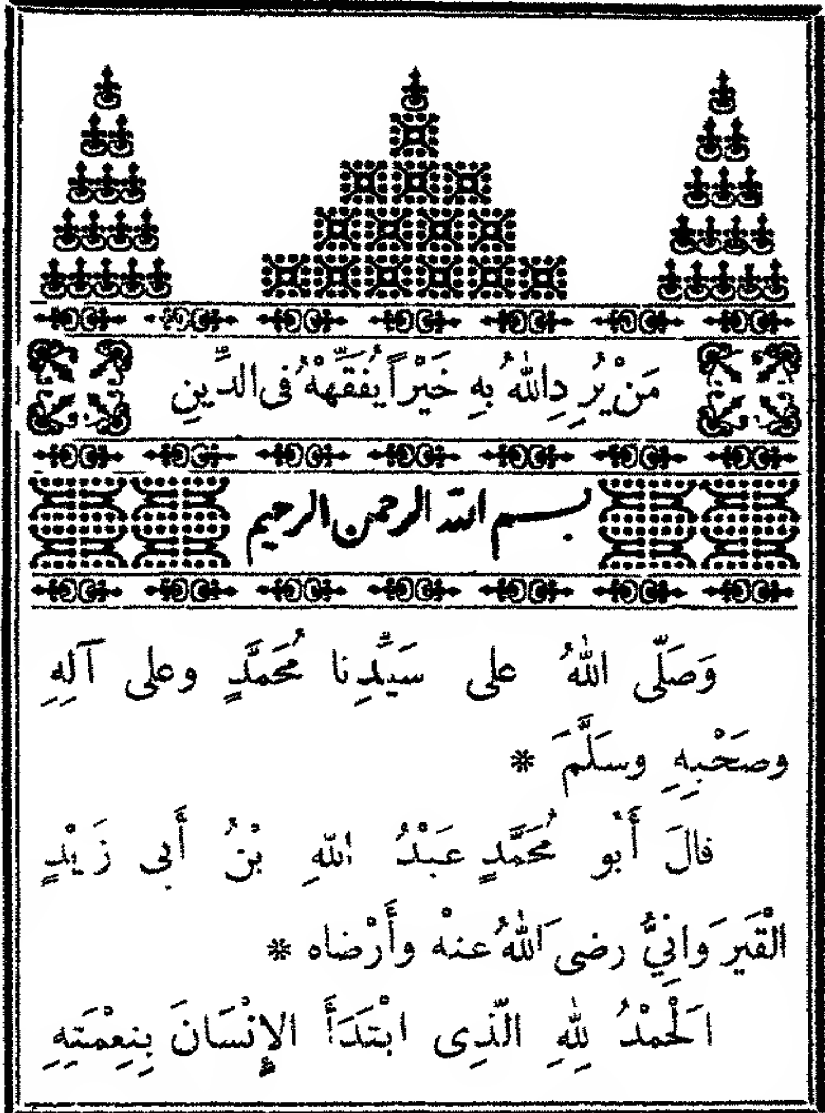 مَنْ يُرِدِ اللهُ بِهِ خَيْراً يُفَقِّهْهُ فى الدِّينِ
بسم الله الرحمن الرحيم
وَصَلَّى اللهُ على سَيِّدِنا مُحَمَّدٍ وعلى آلِهِ
وصَحْبِهِ وسَلَّمَ *
قالَ أَبُو مُحَمَّدٍ عَبْدُ اللهِ بْنُ أَبى زَيْدٍ
الْقَيْرَوانِيُّ رضىَ اللهُ عنْهُ وأَرْضاه *
الَحْمْدُ لِلهِ الَّذِى ابْتَدَأَ الإِنْسَانَ بِنِعْمَتِهِ